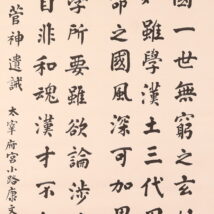 國一世無窮之玄
雖學漢土三代
命之國風深可加
學所要雖欲論涉
自非和魂漢才不
菅神遺誡 太宰府宮小路康文